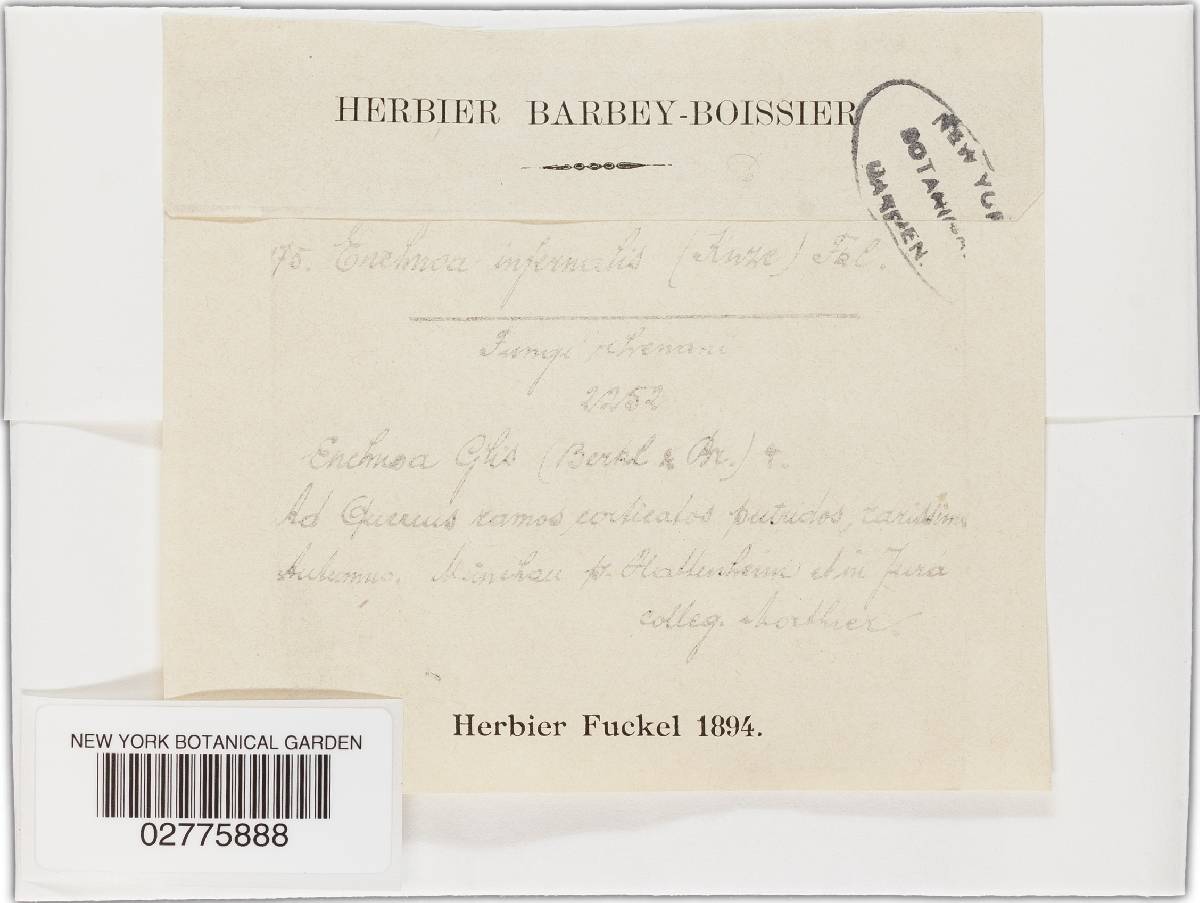 HERBIER BARBEY-BOISSIER
NEW YOR
BOTANICA
GARDEN.
75. Enchnoa infernalis (Knze) Fcl.
Fungi rhenani
2152
Enchnoa Glis (Berkl & Br.)
Ad Quercus ramos corticatos putridos, rarissim
Autumno. Münchau p. Hattenheim et in Jura
colleg. Morthier.
Herbier Fuckel 1894.
NEW YORK BOTANICAL GARDEN
02775888